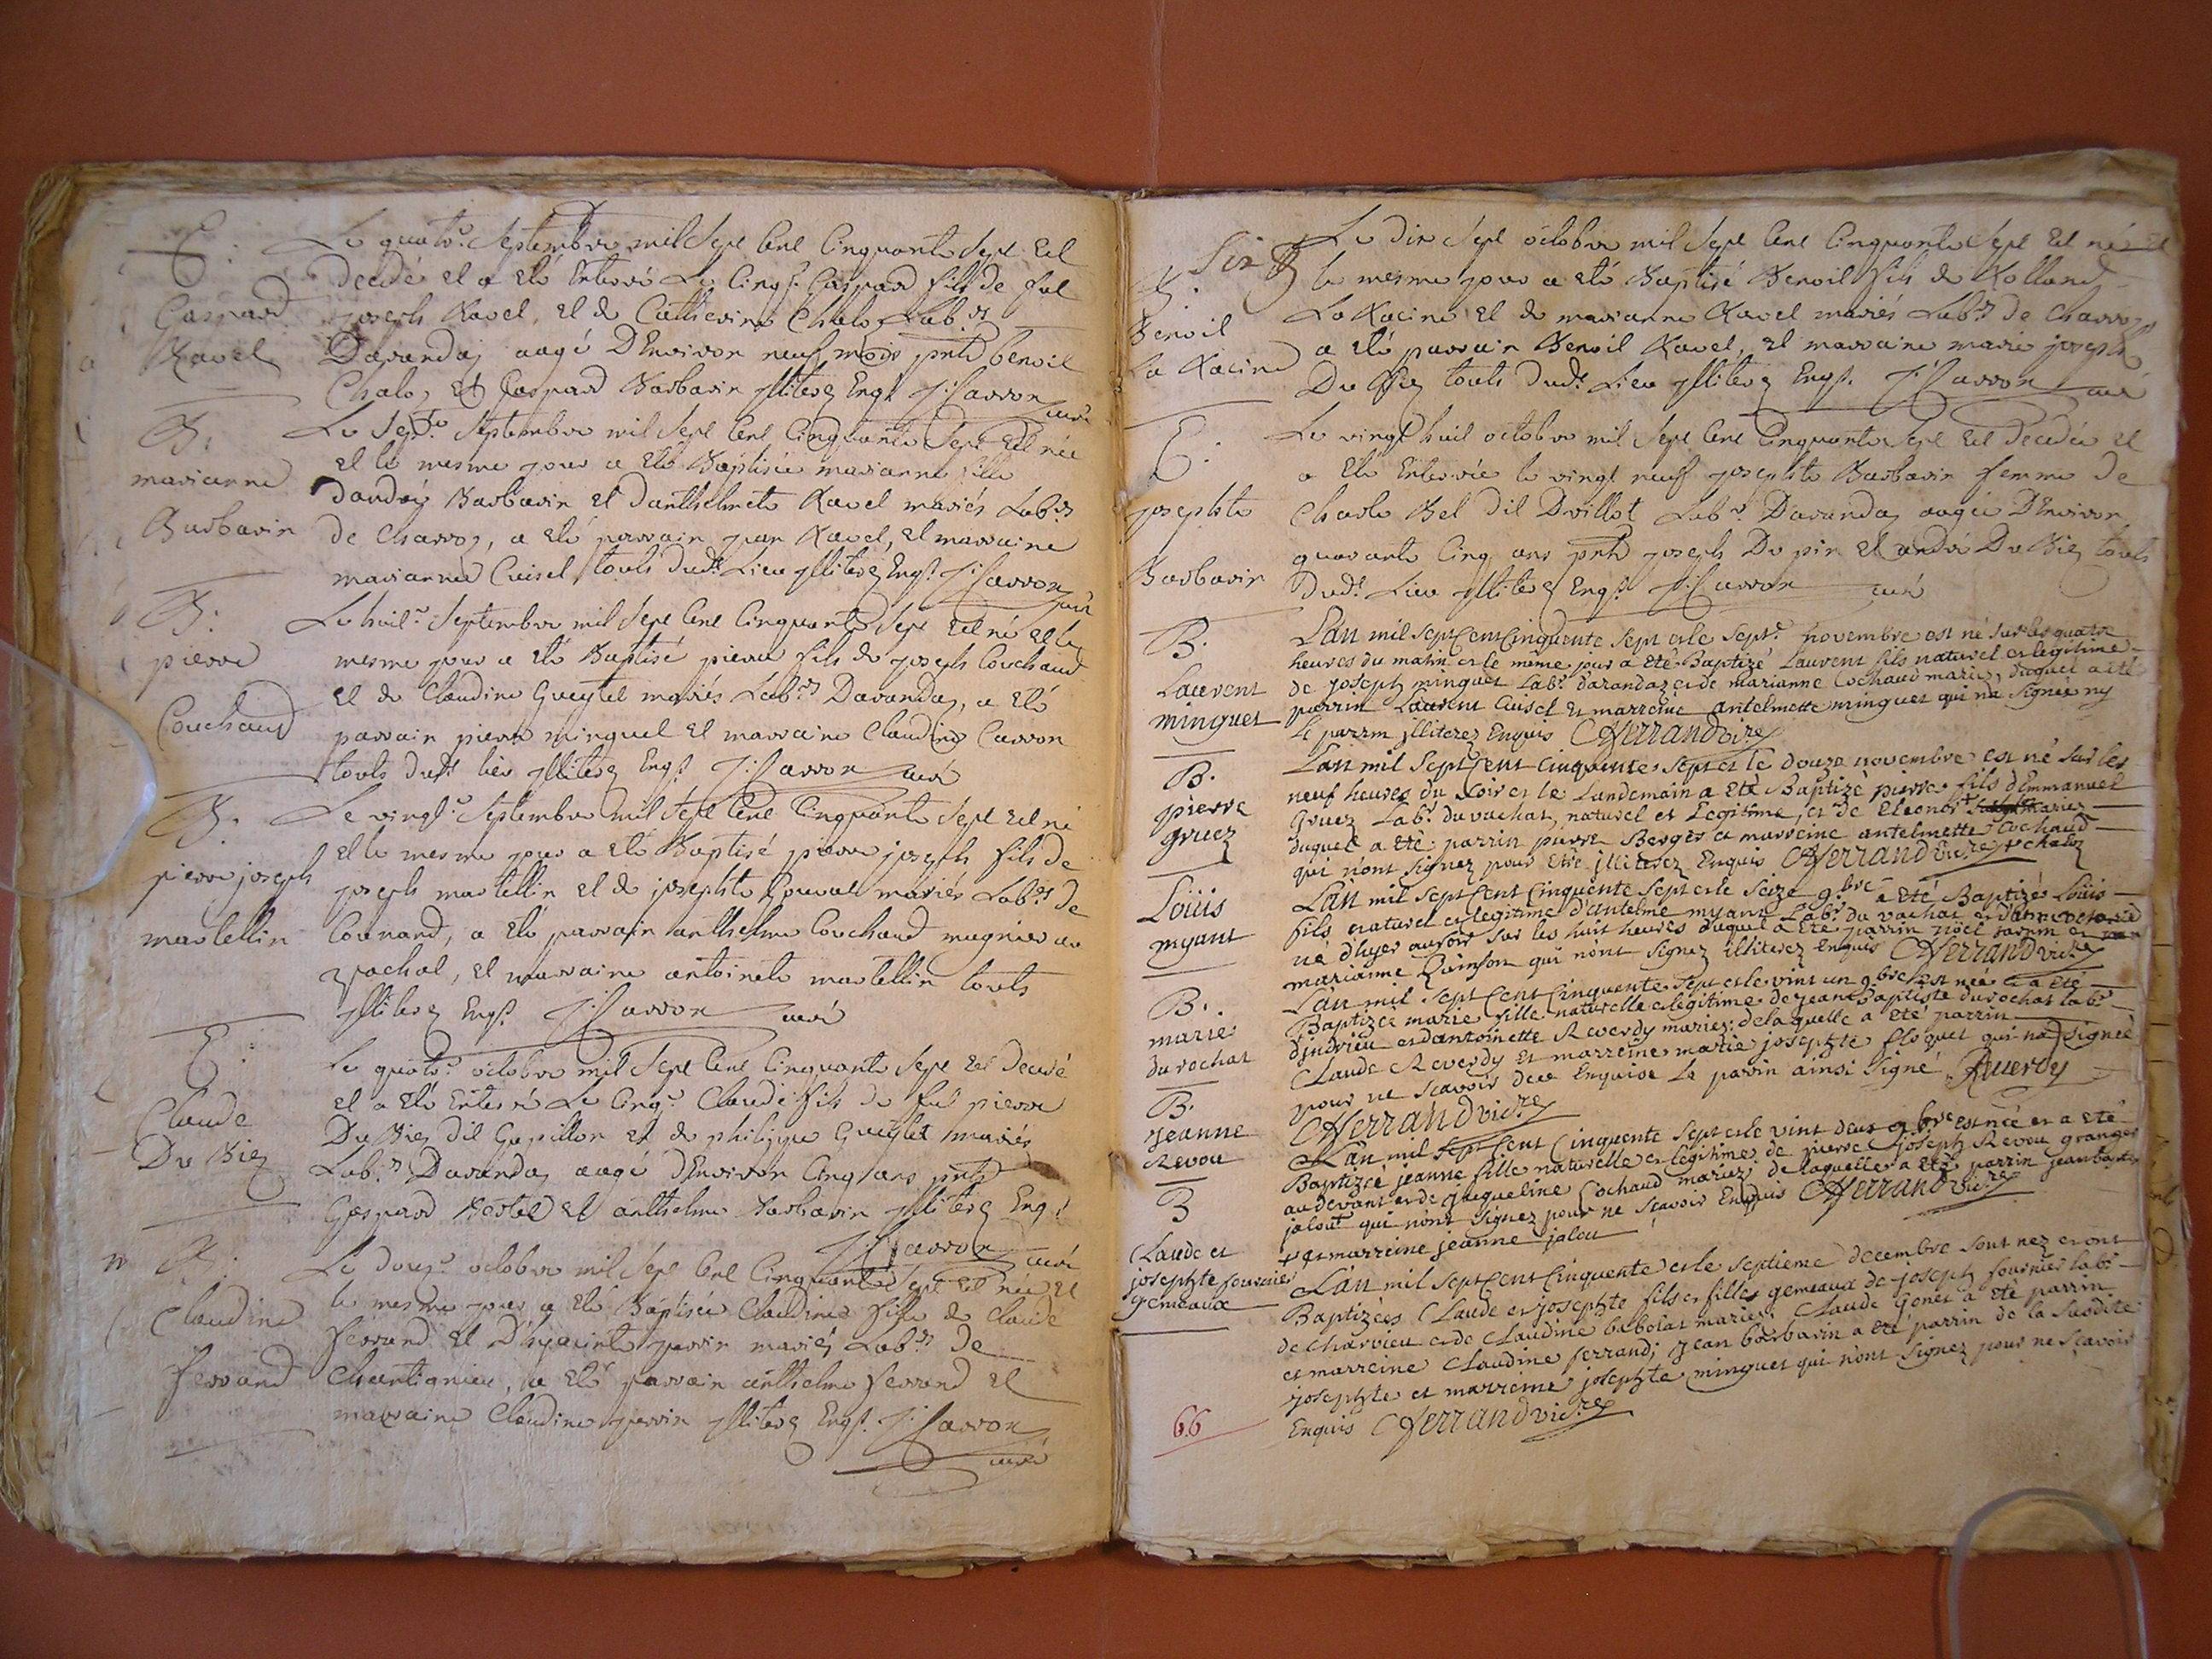 E.
Gaspard
Ravel
Le quatr.e Septembre mil Sept Cent Cinquante Sept Est
decedé et a Eté Enterré Le Cinq.e Gaspard fils de fut
joseph Ravel, et de Catherine Chalo, Lab.rs
Darandaz aagé DEnviron neuf mois pnts benoit
Chalo, et Gaspard Barbarin jlliterez Enq.s J: Carron
curé
B.
marianne
Barbarin
Le Sept.e Septembre mil Sept Cent Cinquante Sept Est née
et le mesme jour a Eté Baptisée marianne fille
dandré Barbarin et danthelmete Ravel mariés Lab.rs
de Charvoz, a Eté parrain jean Ravel, et marraine
marianne Cuisel touts dud.t Lieu jlliterez Enq.s J: Carron
curé
B.
pierre
Couchaud
Le huit.e Septembre mil Sept Cent Cinquante Sept Est né et le
mesme jour a Eté Baptisé pierre fils de joseph Couchaud
et de Claudine Gueytel mariés Lab.rs Darandaz, a Eté
parrain pierre minguet et marraine Claudine Carron
touts dud.t lieu jlliterez Enq.s J: Carron curé
B.
pierre joseph
martellin
Le vingt.e Septembre mil Sept Cent Cinquante Sept Est né
et le mesme jour a Eté Baptisé pierre joseph fils de
joseph martellin et de josephte mariés Lab.rs de
Connand, a Eté parrain anthelme Couchaud mugnier au
vachat, et marraine antoinete martellin touts
jlliterez Enq.s J: Carron curé
E.
Claude
Du Biez
Le quatr.e octobre mil Sept Cent Cinquante Sept Est decedé
et a Eté Enterré Le Cinq.e Claude fils de fut pierre
Du Biez dit Gupillon et de philippa Gueytet mariés
Lab.rs Darandaz aagé dEnviron Cinq ans pnts
Gaspard et anthelme Barbarin jlliterez Enq.s
J: Carron curé
B.
Claudine
ferrand
Le douz.e octobre mil Sept Cent Cinquante Sept Est née et
le mesme jour a Eté Baptisée Claudine fille de Claude
ferrand et Dhyacinte perrin mariés Lab.rs de
Chantignieu, a Eté parrain anthelme ferrand et
marraine Claudine perrin jlliterez Enq.s J: Carron
curé
Six
B.
Benoit
La Racine
Le dix Sept octobre mil Sept Cent Cinquante Sept Est né et
le mesme jour a Eté Baptisé Benoit fils de Rolland
La Racine et de marianne Ravel mariés Lab.rs de Charvoz
a Eté parrain Benoit Ravel, et marraine marie joseph
Du Biez touts dud.t Lieu jlliterez Enq.s J: Carron curé
E.
josephte
Barbarin
Le vingt huit octobre mil Sept Cent Cinquante Sept Est decedée et
a Eté Enterrée le vingt neuf josephte Barbarin femme de
Charle Bel dit Drillot Lab.r Darandaz aagée DEnviron
quarante Cinq ans pnts joseph Du pin et andré Du Biez touts
dud.t Lieu jlliterez Enq.s J: Carron curé
B.
Laurent
minguet
L'an mil Sept Cent Cinquente Sept et le Sept.e novembre est né sur les quatre
heures du matin et le même jour a Eté Baptizé Laurent fils naturel et legitime
de joseph minguet Lab.r darandaz et de marianne Cochaud mariez, duquel a eté
parrin Laurent Cusel et marreine antelmette minguet qui na signée ny
le parrin jlliterez Enquis CFerrand vic.re
B.
pierre
gruez
L'an mil Sept Cent Cinquente Sept et le douze novembre est né sur les
neuf heures du Soir et le Landemain a Eté Baptizè pierre fils dEmmanuel
gruez Lab.r du vachat, naturel et Legitime, et de Eleonor + mariez
duquel a eté parrin pierre Berger et marreine antelmette Cochaud
qui n'ont signez pour etre jlliterez Enquis CFerrand vic.re + chaloz
Loüis
myant
L'an mil Sept Cent Cinquente Sept et le Seize 9.bre a Eté Baptizé Loüis
fils naturel et legitime d'antelme myant Lab.r du vachat et
né d'hyer au soir sur les huit heures duquel a Eté parrin nöel et
marianne Quinson qui n'ont signez illiterez Enquis CFerrand vic.re
B.
marie
du rochat
L'an mil Sept Cent Cinquente Sept et le vint un 9.bre est née et a Eté
Baptizée marie fille naturelle et legitime de jean Baptiste du rochat lab.r
d'indrieu et dantoinette Reverdy mariez: de laquelle a Eté parrin
Claude Reverdy et marreine marie josephte floquet qui na signée
pour ne scavoir dece Enquise le parrin ainsi signé Reverdy
CFerrand vic.re
B.
Jeanne
Revou
L'an mil Sept Cent Cinquente Sept et le vint deus 9.bre est née et a Eté
Baptizée jeanne fille naturelle et legitime de pierre joseph Revou granger
au devant et de jaqueline Cochaud mariez; de laquelle a Eté parrin jean
jalout qui n'ont signez pour ne scavoir Enquis CFerrand vic.re
+ et marreine jeanne jalou
B
Claude et
josephte fournier
gemeaux
L'an mil Sept Cent Cinquente et le Septieme decembre sont nez et ont
Baptizées Claude et josephte fils et filles gemeaux de joseph fournier lab.r
de Charvieu et de Claudine babolat mariez; Claude Gonet a Eté parrin
et marreine Claudine ferrand; jean barbarin a Eté parrin de la susdite
josephte et marreine josephte minguet qui n'ont signez pour ne scavoir
Enquis CFerrand vic.re
66